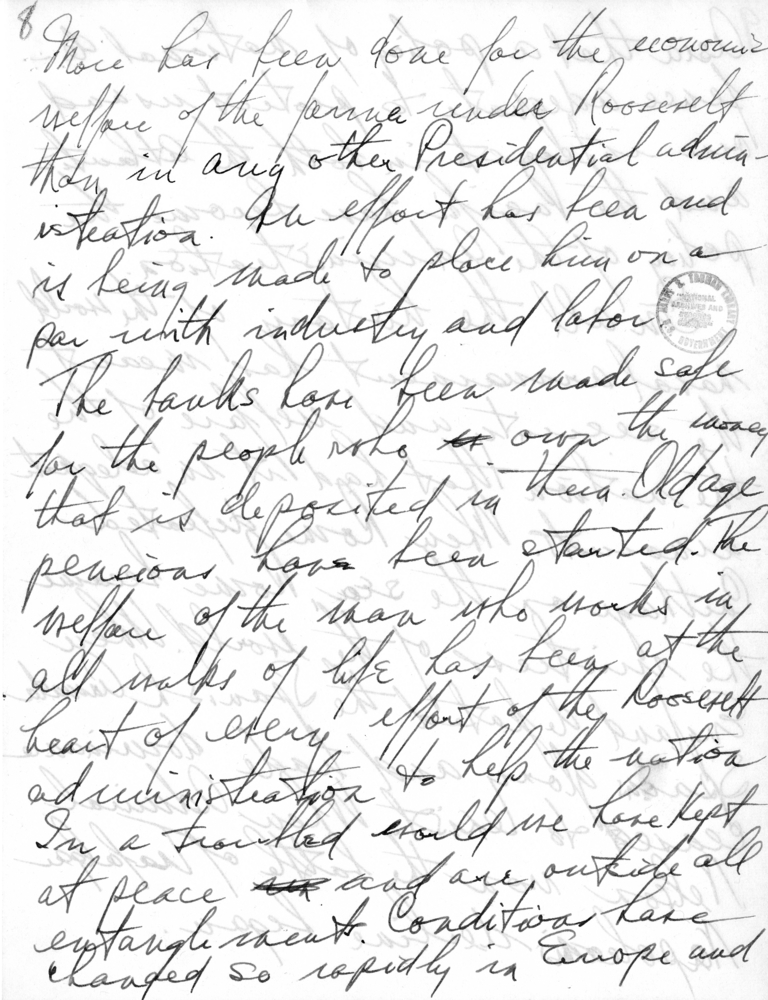 8
More has been done for the economic
welfare of the farmer under Roosevelt
than in any other Presidential admin-
istration. An effort has been and
is being made to place him on a
par with industry and labor
The banks have been made safe
for the people who own the money
that is deposited in them. Old age
pensions have been started. The
welfare of the man who works in
all walks of life has been at the
heart of every effort of the Roosevelt
administration to help the nation
In a troubled world we have kept
at peace and are outside all
entanglements. Conditions have
changed so rapidly in Europe and
HARRY S. TRUMAN LIBRARY
NATIONAL
ARCHIVES AND
GOVERNMENT